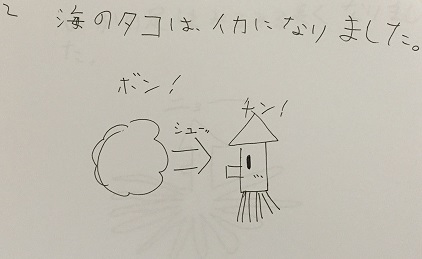 2 海のタコは、イカになりました。
ボン!
シューッ
チン!